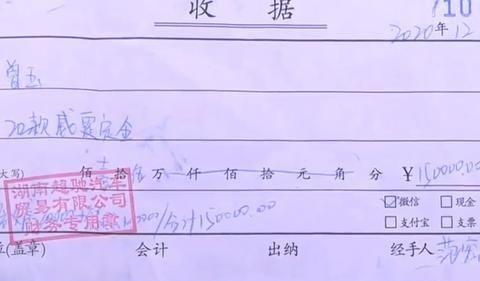 收 据
2020年12
曾玉
20款威霆定金
大写) 佰拾 万 仟 佰 拾 元 角 分 ¥150000.00
湖南超驰汽车
贸易有限公司
财务专用章
/合计150000.00
☑微信 □现金
□支付宝 □支票
位(盖章) 会计 出纳 经手人